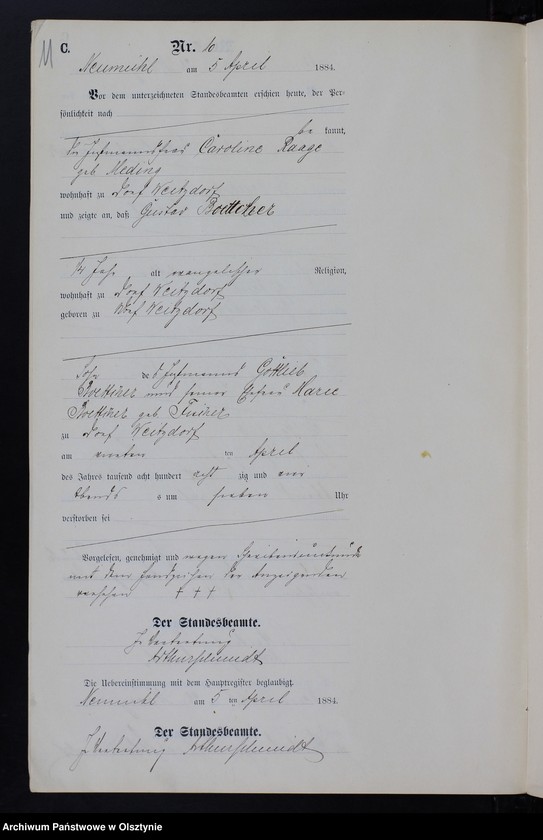 11
C.
Nr. 16
Neumühl am 5 April 1884.
Vor dem unterzeichneten Standesbeamten erschien heute, der Per-
sönlichkeit nach
be kannt,
die Instmannsfrau Caroline Raage
geb Heding
wohnhaft zu Dorf Weitzdorf
und zeigte an, daß Gustav Boettcher
alt evangelischer Religion,
wohnhaft zu Dorf Weitzdorf
geboren zu Dorf Weitzdorf
Sohn des Instmanns Gottlieb
Boettcher und seiner Ehefrau Marie
Boettcher geb Fischer
zu Dorf Weitzdorf
am vierten ten April
des Jahres tausend acht hundert acht zig und vier
Abends s um sieben Uhr
verstorben sei
Vorgelesen, genehmigt und wegen Schreibensunkunde
mit dem Handzeichen der Anzeigenden
versehen † † †
Der Standesbeamte.
In Vertretung
Arthur Schmidt
Die Uebereinstimmung mit dem Hauptregister beglaubigt.
Neumühl am 5 ten April 1884.
Der Standesbeamte.
In Vertretung Arthur Schmidt
Archiwum Państwowe w Olsztynie